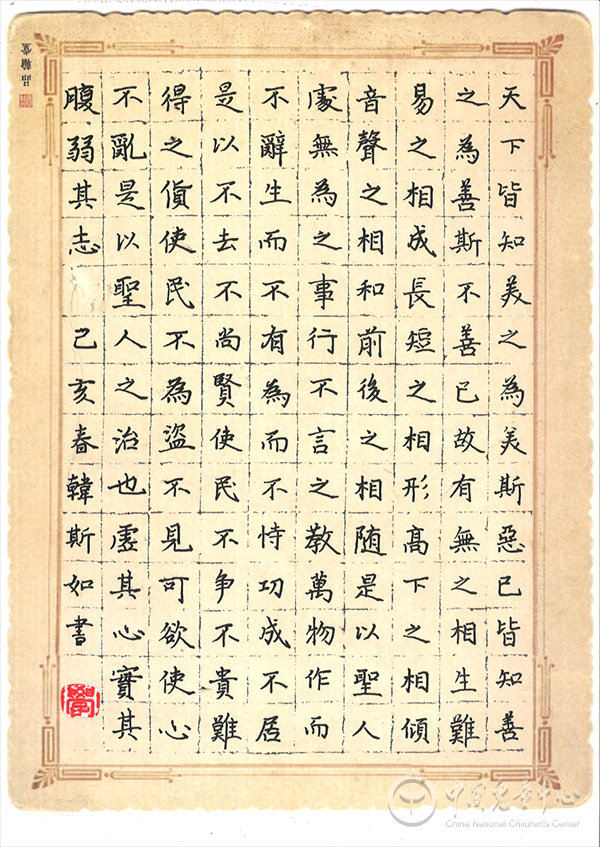 天下皆知美之為美斯惡已皆知善
之為善斯不善已故有無之相生難
易之相成長短之相形高下之相傾
音聲之相和前後之相随是以聖人
處無為之事行不言之教萬物作而
不辭生而不有為而不恃功成不居
是以不去不尚賢使民不争不貴難
得之貨使民不為盜不見可欲使心
不亂是以聖人之治也虛其心實其
腹弱其志 己亥春韓斯如書
品翰堂
中国儿童中心
China National Children's Center